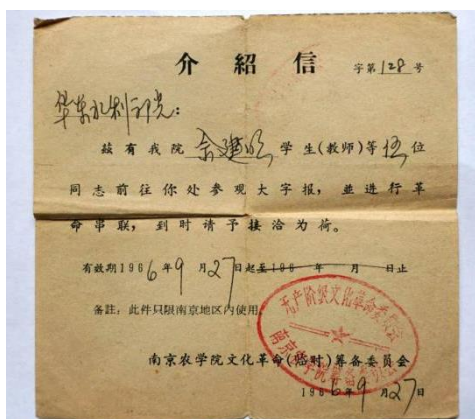 介紹信 字第128号
华东水利学院：
茲有我院余建明学生(教师)等伍位
同志前往你处参观大字报，並进行革
命串联，到时请予接洽为荷。
有效期1966年9月27日起至196 年 月 日止
备註：此件只限南京地区内使用。
无产阶级文化革命委员会
南京农学院筹备
南京农学院文化革命(临时)筹备委员会
1966年9月27日